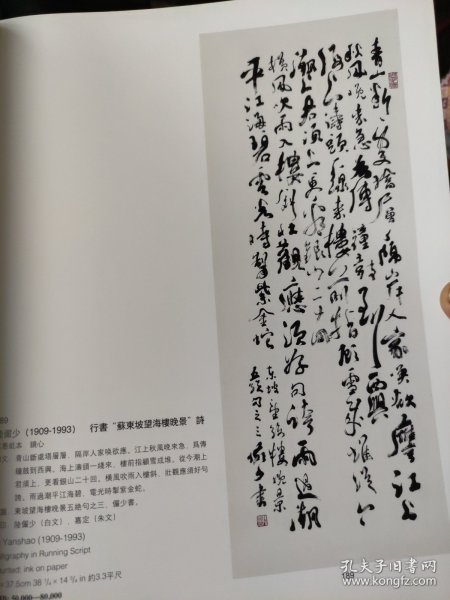 青山斷處塔層層隔岸人家喚欲應江上
秋風晚來急為傳鐘鼓到西興
海上濤頭一線來樓前指顧雪成堆從今
潮上君須上更看銀山二十回
橫風吹雨入樓斜壯觀應須好句誇雨過潮
平江海碧電光時掣紫金蛇
東坡望海樓晚景
五絕句之三儼少書
89
儼少 (1909-1993) 行書“蘇東坡望海樓晚景”詩
紙本 鏡心
文：青山斷處塔層層，隔岸人家喚欲應。江上秋風晚來急，爲傳
鐘鼓到西興。海上濤頭一綫來，樓前指顧雪成堆。從今潮上
君須上，更看銀山二十回。橫風吹雨入樓斜，壯觀應須好句
誇。雨過潮平江海碧，電光時掣紫金蛇。
東坡望海樓晚景五絕句之三，儼少書。
陸儼少（白文）、嘉定（朱文）
Yanshao (1909-1993)
igraphy in Running Script
unted: ink on paper
× 37.5cm 38 1/4 × 14 3/4 in 約3.3平尺
50,000—80,000
189
孔夫子旧书网